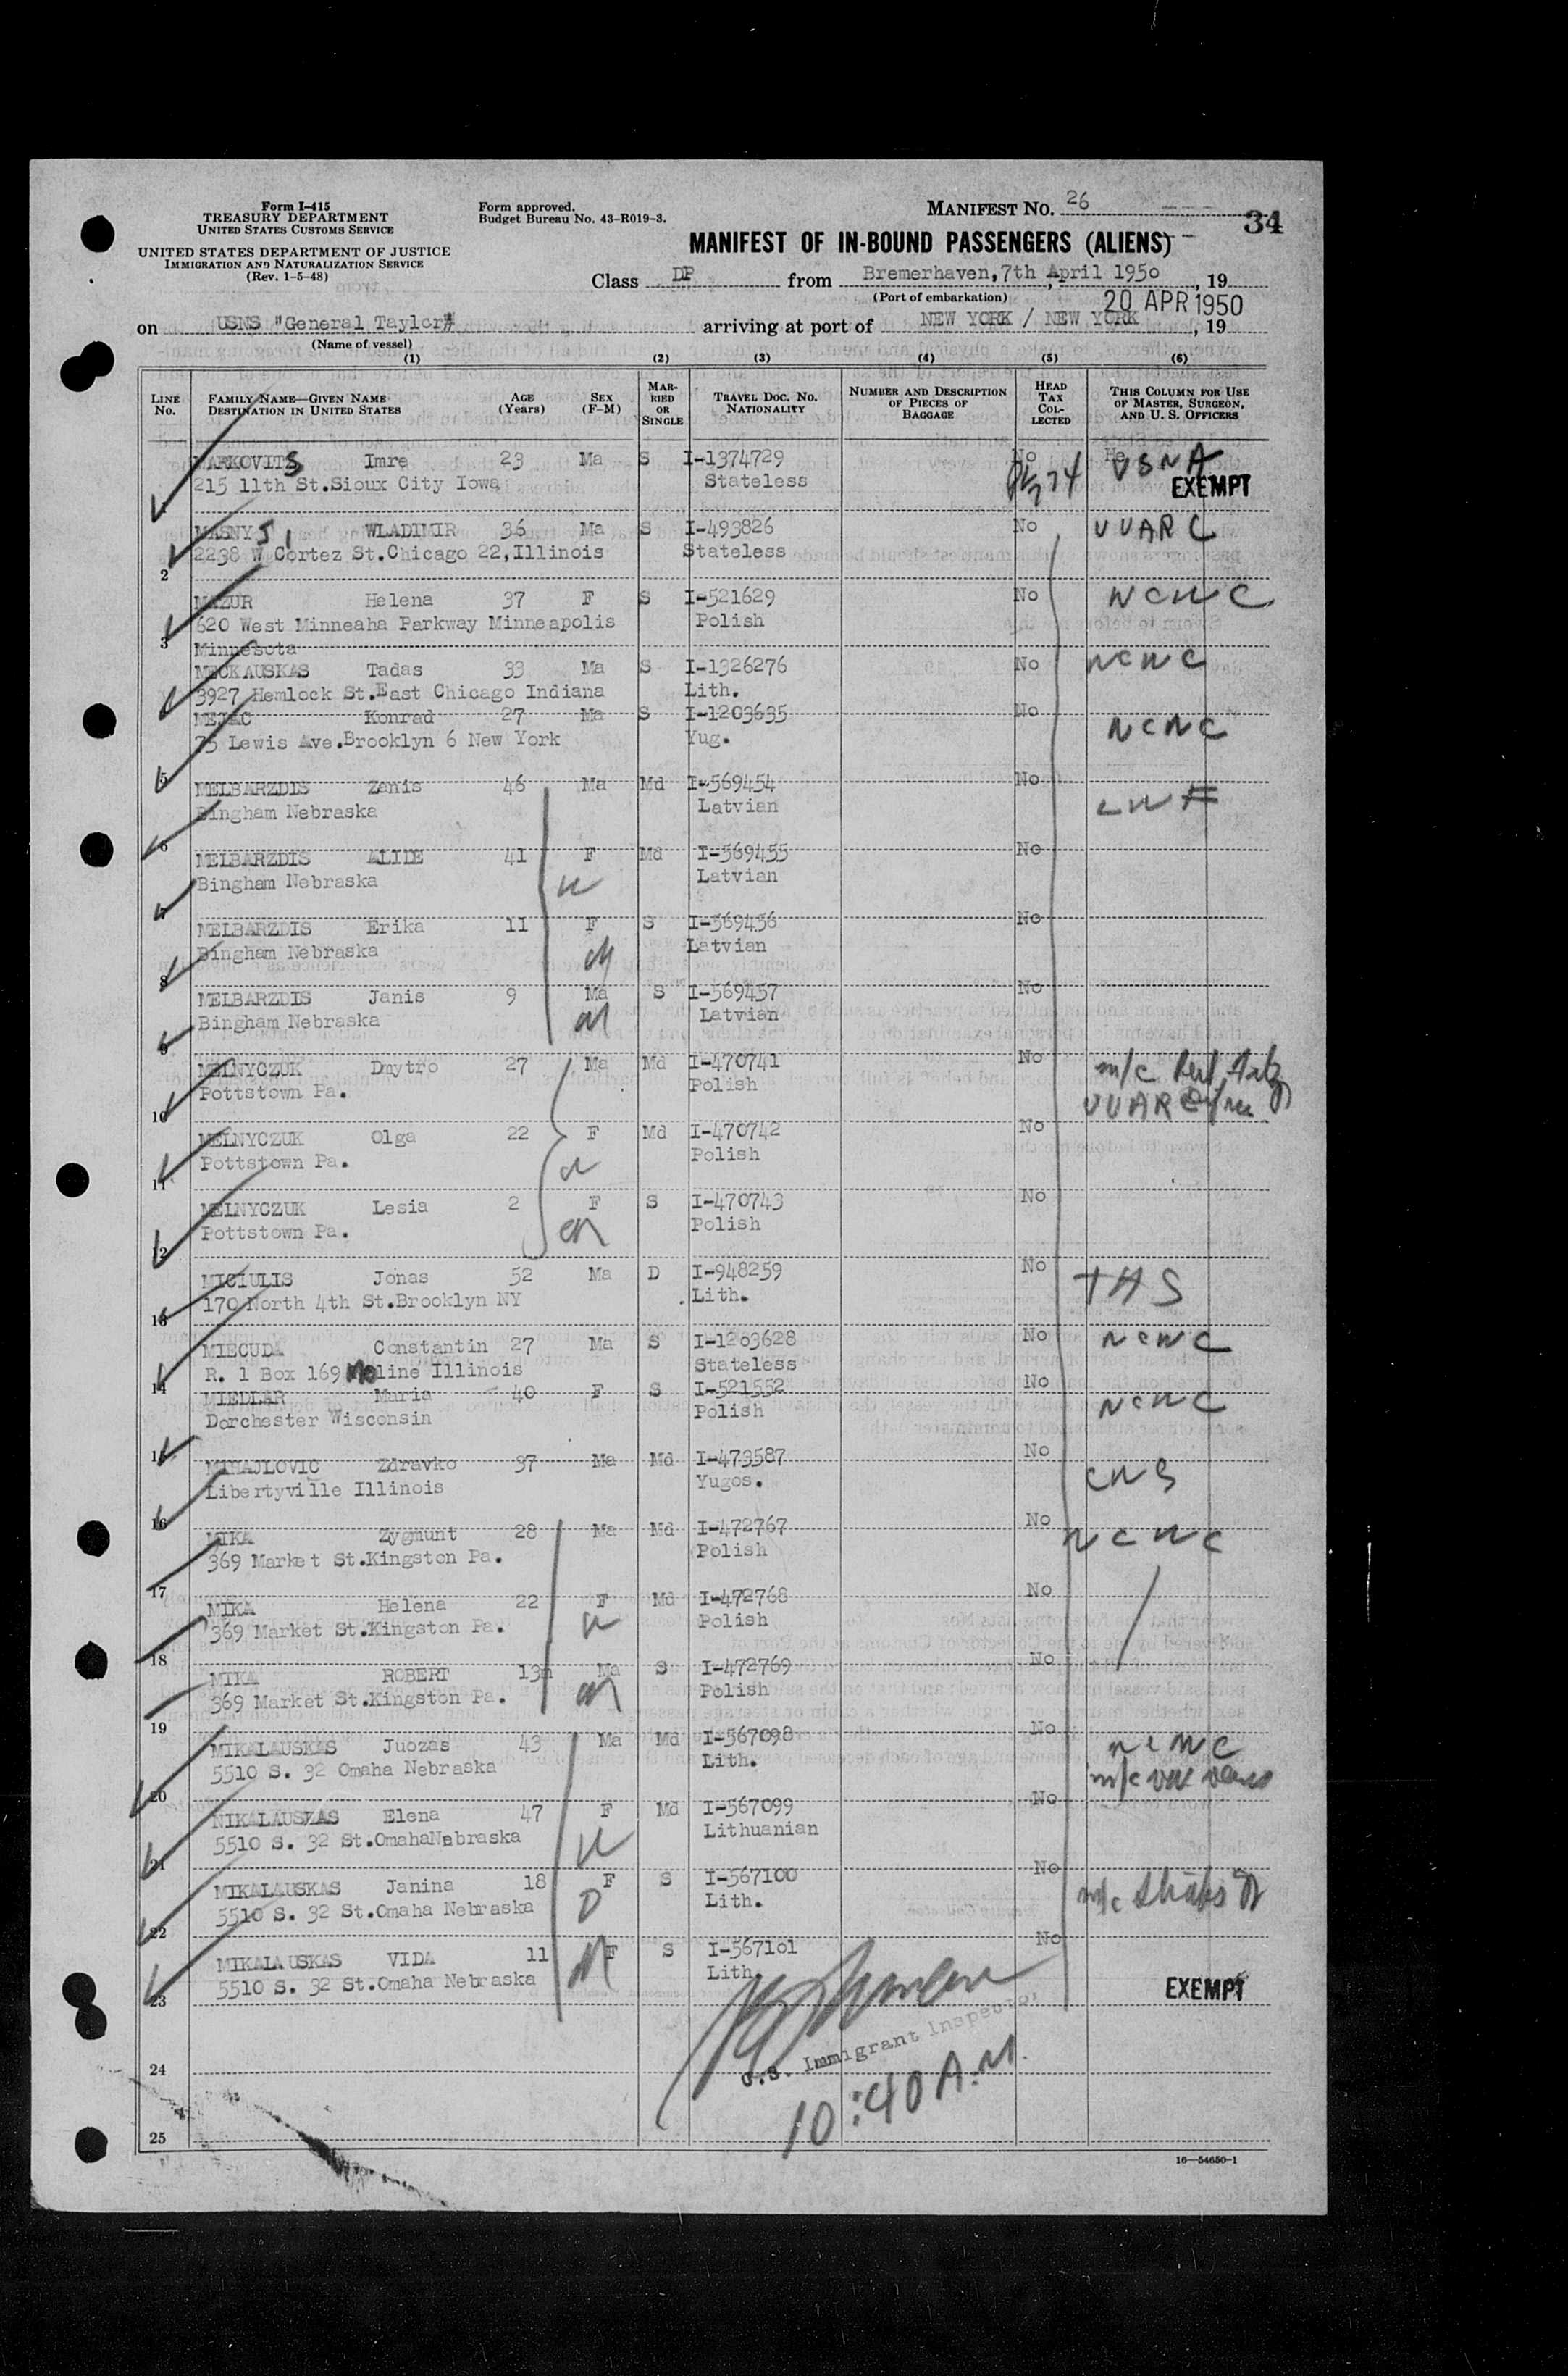 Form I-415
TREASURY DEPARTMENT
UNITED STATES CUSTOMS SERVICE
UNITED STATES DEPARTMENT OF JUSTICE
IMMIGRATION AND NATURALIZATION SERVICE
(Rev. 1-5-48)
Form approved.
Budget Bureau No. 43-R019-3.
MANIFEST NO. 26
34
MANIFEST OF IN-BOUND PASSENGERS (ALIENS)
Class DP from Bremerhaven, 7th April 1950, 19
(Port of embarkation)
20 APR 1950
on USNS "General Taylor" arriving at port of NEW YORK / NEW YORK, 19
(Name of vessel)
(1) (2) (3) (4) (5) (6)
LINE No. FAMILY NAME—GIVEN NAME DESTINATION IN UNITED STATES AGE (Years) SEX (F-M) MARRIED OR SINGLE TRAVEL DOC. No. NATIONALITY NUMBER AND DESCRIPTION OF PIECES OF BAGGAGE HEAD TAX COLLECTED THIS COLUMN FOR USE OF MASTER, SURGEON, AND U. S. OFFICERS
MARKOVITS Imre 23 Ma S I-1374729 No He USNA
215 11th St.Sioux City Iowa Stateless EXEMPT
1
MASNYJ WLADIMIR 36 Ma S I-493826 No UUARC
2238 W Cortez St.Chicago 22,Illinois Stateless
2
MAZUR Helena 37 F S I-521629 No NCWC
620 West Minneaha Parkway Minneapolis Polish
3 Minnesota
MECKAUSKAS Tadas 33 Ma S I-1326276 No NCWC
3927 Hemlock St.East Chicago Indiana Lith.
4 MEJAC Konrad 27 Ma S I-1203635 No NCWC
75 Lewis Ave.Brooklyn 6 New York Yug.
5 MELBARZDIS Zanis 46 Ma Md I-569454 No LWF
Bingham Nebraska Latvian
6 MELBARZDIS ALIDE 41 F Md I-569455 No
Bingham Nebraska Latvian
7 MELBARZDIS Erika 11 F S I-569456 No
Bingham Nebraska Latvian
8 MELBARZDIS Janis 9 Ma S I-569457 No
Bingham Nebraska Latvian
9
MELNYCZUK Dmytro 27 Ma Md I-470741 No
Pottstown Pa. Polish UUARC
10
MELNYCZUK Olga 22 F Md I-470742 No
Pottstown Pa. Polish
11
MELNYCZUK Lesia 2 F S I-470743 No
Pottstown Pa. Polish
12
MICIULIS Jonas 52 Ma D I-948259 No
170 North 4th St.Brooklyn NY Lith.
13
MIECUDA Constantin 27 Ma S I-1203628 No NCWC
R. 1 Box 169 Moline Illinois Stateless
14 MIEDLAR Maria 40 F S I-521552 No NCWC
Dorchester Wisconsin Polish
15 MIHAJLOVIC Zdravko 37 Ma Md I-473587 No CWS
Libertyville Illinois Yugos.
16 MIKA Zygmunt 28 Ma Md I-472767 No NCWC
369 Market St.Kingston Pa. Polish
17 MIKA Helena 22 F Md I-472768 No
369 Market St.Kingston Pa. Polish
18 MIKA ROBERT 13m Ma S I-472769 No
369 Market St.Kingston Pa. Polish
19 MIKALAUSKAS Juozas 43 Ma Md I-567098 No NCWC
5510 S. 32 Omaha Nebraska Lith.
20 NIKALAUSKAS Elena 47 F Md I-567099 No
5510 S. 32 St.OmahaNebraska Lithuanian
21
MIKALAUSKAS Janina 18 F S I-567100 No
5510 S. 32 St.Omaha Nebraska Lith.
22
MIKALAUSKAS VIDA 11 F S I-567101 No
5510 S. 32 St.Omaha Nebraska Lith. EXEMPT
23
U.S. Immigrant Inspector
24
10:40 A.M.
25
16—54650-1